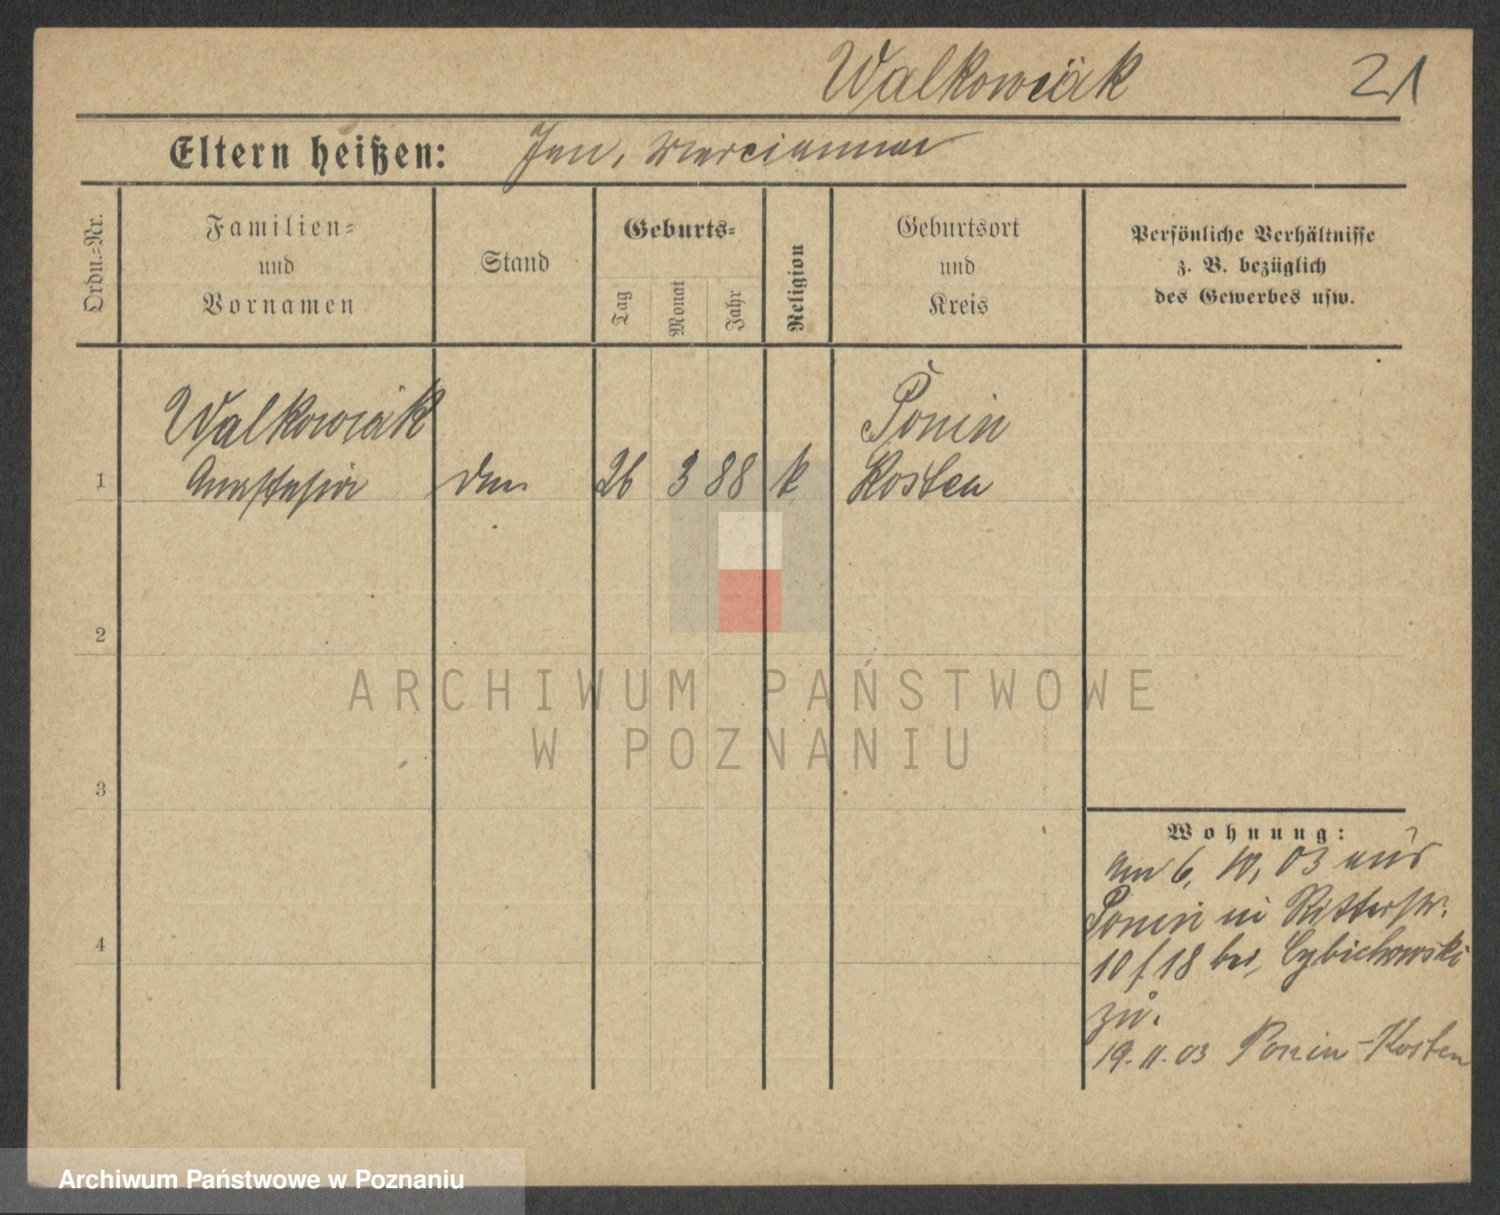 Walkowiak 21
Eltern heißen: Jan, Marcianna
Ordn.-Nr.
Familien-
und
Vornamen
Stand
Geburts-
Tag
Monat
Jahr
Religion
Geburtsort
und
Kreis
Persönliche Verhältnisse
z. B. bezüglich
des Gewerbes usw.
Walkowiak Ponin
1 Anastasia 26 3 88 k Kosten
2
3
4
ARCHIWUM PAŃSTWOWE
W POZNANIU
Wohnung:
am 6. 10. 03 aus
Ponin in Ritterstr.
10/18 bei Cybichowski
zu.
19. 11. 03 Ponin-Kosten
Archiwum Państwowe w Poznaniu